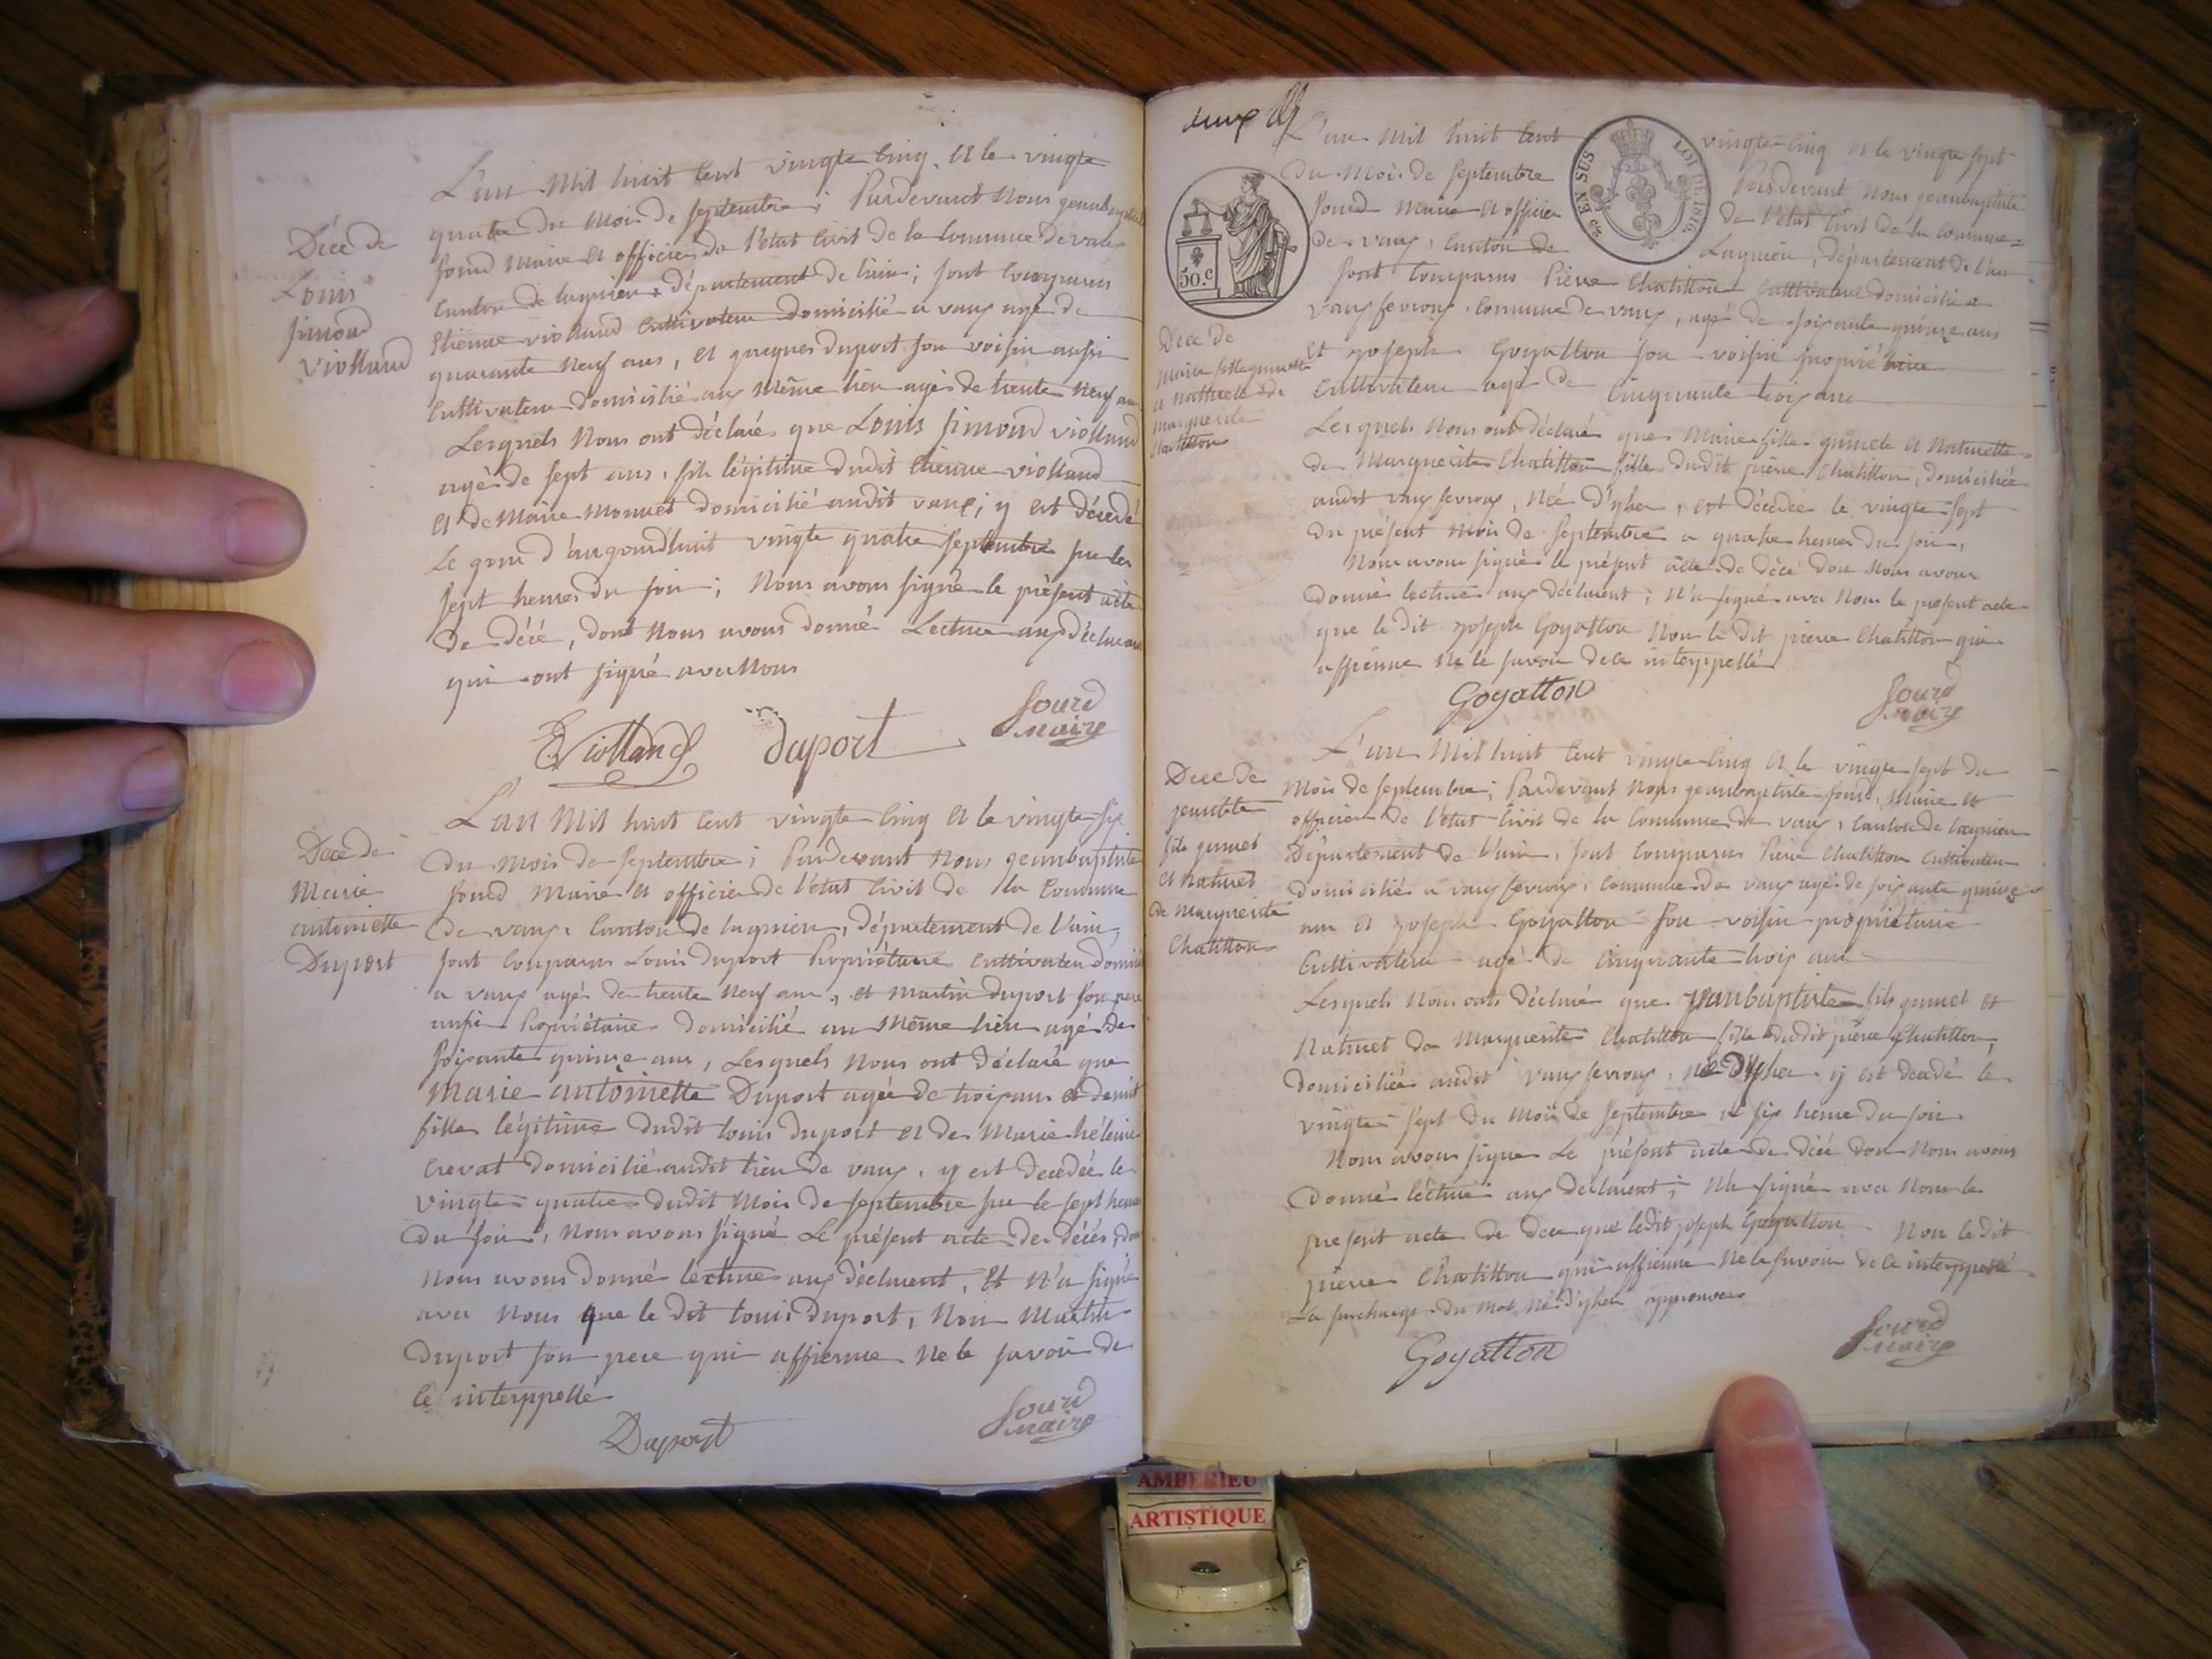 L'an Mil huit Cent vingte Cinq, et le vingte
quatre du Mois de Septembre; Pardevant Nous jeanbaptiste
Sourd Maire et officier de l'etat Civil de la Commune de vaux
Canton de lagnieu, département de l'ain; sont Comparus
Etienne violland Cultivateur domicilié a vaux agé de
quarante neuf ans, et jacques duport son voisin aussi
Cultivateur domicilié au Même lieu agés de trente Neuf ans
Lesquels Nous ont déclaré que Louis Simond violland
agé de sept ans, fils légitime dudit Etienne violland
et de Marie Monnet domicilié audit vaux; y est décedé
Le jour d'aujourd'huit vingte quatre Septembre sur les
sept heures du soir; Nous avons signé le présent acte
de décé, dont Nous avons donné Lecture aux déclarant
qui ont signé avec Nous
Décé de
Louis
Simond
violland
EViolland duport Sourd
maire
L'an Mil huit Cent vingte Cinq et le vingte six
du Mois de Septembre; Pardevant Nous jeanbaptiste
Sourd Maire et officier de l'etat Civil de la Commune
de vaux, Canton de lagnieu, département de l'ain,
sont Comparus Louis duport Propriétaire Cultivateur domicilié
a vaux agé de trente Neuf ans, et Martin duport son pere
aussi Propriétaire domicilié au Même lieu agé de
soisante quinze ans, Lesquels Nous ont déclaré que
Marie antoinette Duport agée de trois ans et demit
fille légitime dudit Louis duport et de Marie héleine
Crevat domicilié audit lieu de vaux, y est decedée le
vingte quatre dudit Mois de Septembre sur le sept heures
du soir, Nous avons signé Le présent acte de décés, dont
Nous avons donné lecture aux déclarent, Et N'a signé
avec Nous que le dit Louis duport, Non Martin
duport son pere qui affierme Ne le savoir de
Ce interppellé
Décé de
Marie
antoinette
Duport
Duport Sourd
maire
L'an Mil huit Cent vingte Cinq et le vingte sept
du Mois de Septembre Pardevant Nous jeanbaptiste
Sourd Maire et officier de l'etat Civil de la Commune
de vaux, Canton de Lagnieu, département de l'ain
sont Comparus Pièrre Chatillon Cultivateur domicilié a
vaux fevroux, Commune de vaux, agé de soisante quinze ans
et joseph Goyatton son voisin propriétaire
Cultivateur agé de Cinquante trois ans
Lesquels Nous ont déclaré que Marie fille jumele et Naturelle
de Marguerite Chatillon fille dudit pièrre Chatillon, domiciliée
audit vaux fevroux, Née d'yher, est décedée le vingte sept
du présent Mois de Septembre a quatre heures du soir,
Nous avons signé le présent acte de décé dont Nous avons
donné lecture aux déclarent; N'a signé avec Nous le présent acte
que le dit joseph Goyatton Non le dit pierre Chatillon qui
affierme Ne le savoir de Ce interppellé
50.c
EN SUS
LOI DE 1816.
Décé de
Marie fille jumelle
et natturele de
marguerite
Chatillon
Goyatton Sourd
maire
L'an Mil huit Cent vingte Cinq et le vingte sept du
Mois de Septembre; Pardevant Nous jeanbaptiste Sourd, Maire et
officier de l'etat Civil de la Commune de vaux, Canton de lagnieu
Département de l'ain, sont Comparus Pièrre Chatillon Cultivateur
domicilié a vaux fevroux, Commune de vaux agé de soisante quinze
ans et joseph Goyatton son voisin propriétaire
Cultivateur agé de Cinquante trois ans
Lesquels Nous ont déclaré que jeanbaptiste fils jumel et
Naturel de Marguerite Chatillon fille dudit pièrre Chatillon,
domiciliée audit vaux fevroux, né D'yher y est decedé le
vingte sept du Mois de Septembre a six heure du soir
Nous avons signé Le présent acte de décé dont Nous avons
donné lecture aux declarent; N'a signé avec Nous le
présent acte de dece que ledit joseph Goyatton Non le dit
pierre Chatillon qui affierme Ne le savoir de Ce interppellé
La surcharge du Mot Né d'yher approuvee
Decé de
jeanbtte
fils jumel
et naturel
de Marguerite
Chatillon
Goyatton Sourd
maire
AMBERIEU
ARTISTIQUE